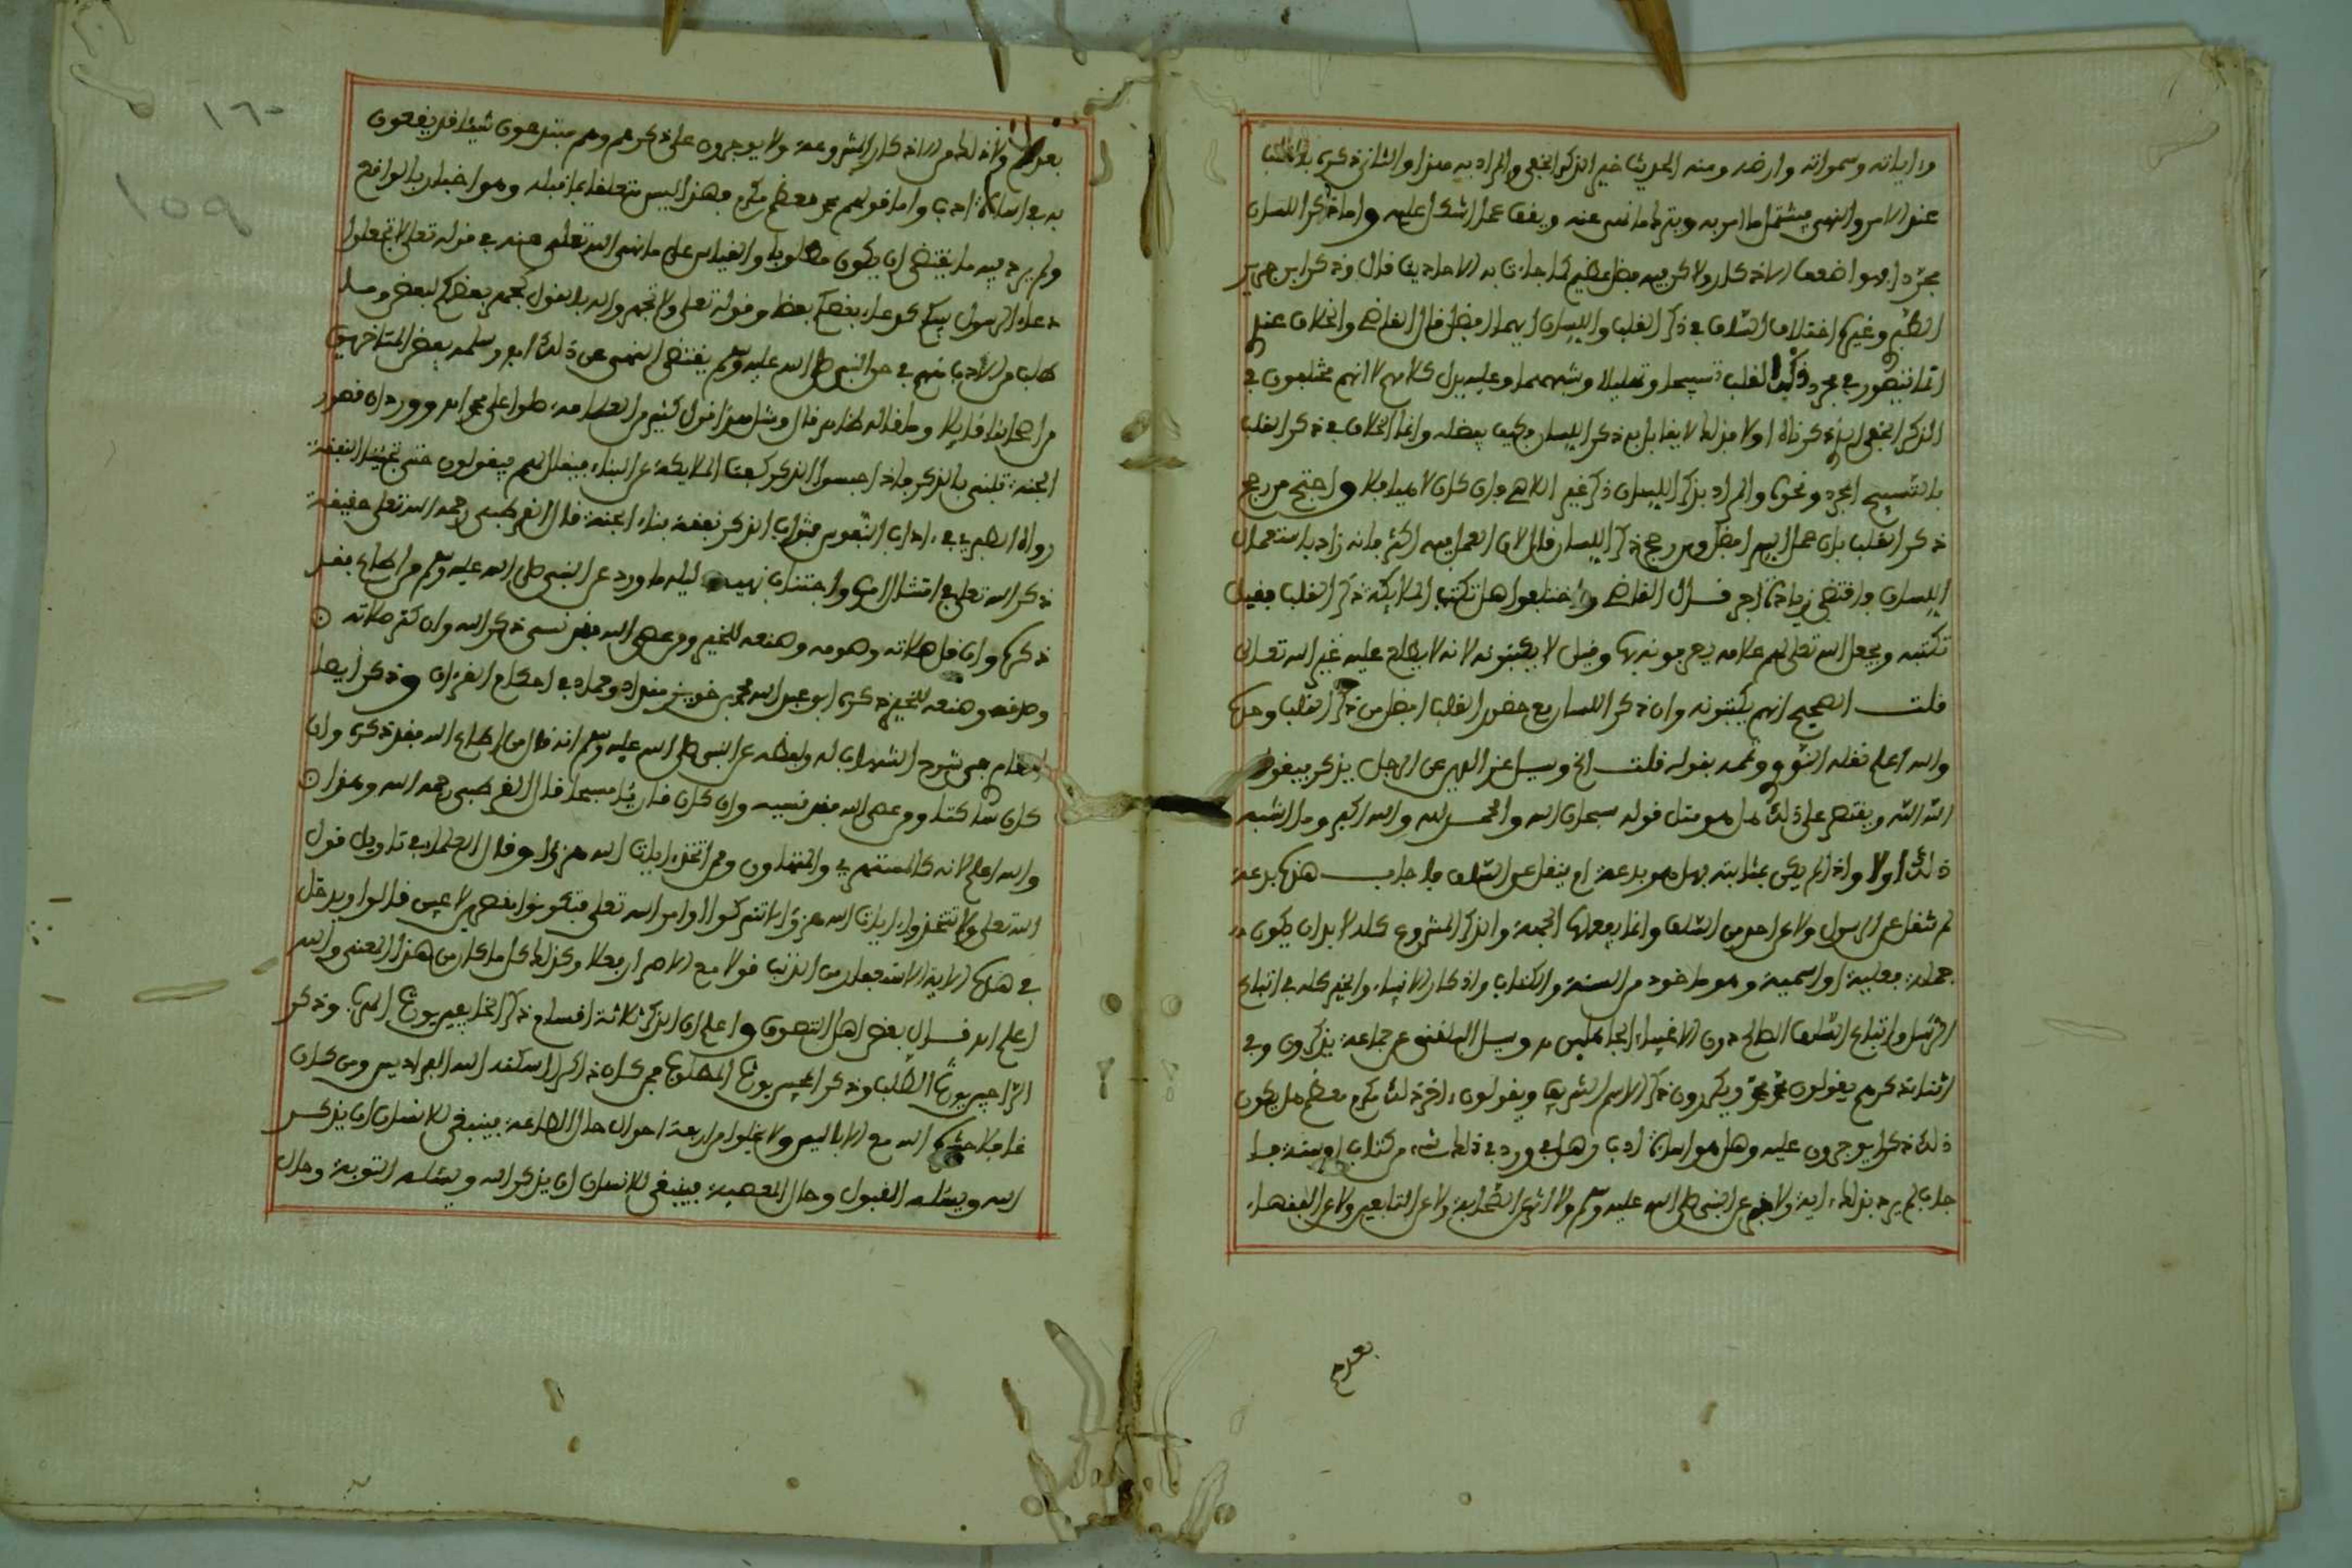 وءاياته وسمواته وارضه ومنه الحديث خير الذكر الخفي والمراد به هذا والثاني ذكره بالقلب
عند الامر والنهي فيمتثل ما امر به ويترك ما نهى عنه ويقف عما اشكل عليه واما ذكر اللسان
مجردا فهو اضعف الاذكار ولاكن فيه فضل عظيم كما جاءت به الاحاديث قال وذكر ابن جرير
الطبري وغيره اختلاف السلف في ذكر القلب واللسان ايهما افضل قال القاضي والخلاف عندي
انما يتصور في مجرد ذكر القلب تسبيحا وتهليلا وشبههما وعليه يدل كلامهم لا انهم مختلفون في
الذكر الخفي الذي ذكرناه اولا فذلك لا يقاربه ذكر اللسان فكيف يفضله وانما الخلاف في ذكر القلب
بالتسبيح المجرد ونحوه والمراد بذكر اللسان ذكره غير اللاهي وان كان لاهيا فلا واحتج من رجح
ذكر القلب بان عمل السر افضل ومن رجح ذكر اللسان قال لان العمل فيه اكثر فانه زاد باستعمال
اللسان واقتضى زيادة اجر قال القاضي واختلفوا هل تكتب الملائكة ذكر القلب فقيل
تكتبه ويجعل الله تعلى لهم علامة يعرفونه بها وقيل لا يكتبونه لانه لا يطلع عليه غير الله تعالى
قلت الصحيح انهم يكتبونه وان ذكر اللسان مع حضور القلب افضل من ذكر القلب وحده
والله اعلم نقله النووي بقوله قلت الخ وسيل عز الدين عن الرجل يذكر فيقول
الله الله ويقتصر على ذلك هل هو مثل قوله سبحان الله والحمد لله والله اكبر وما اشبه
ذلك اولا واذا لم يكن بمثابته فهل هو بدعة او ينقل عن السلف فاجاب هذه بدعة
لم تنقل عن الرسول ولا عن احد من السلف وانما يفعلها الجهلة والذكر المشروع كله لا بد ان يكون
جملة فعلية او اسمية وهو ماخوذ من السنة والكتاب واذكار الانبياء والخير كله في اتباع
الرسل واتباع السلف الصالح دون الاغبياء الجاهلين وسيل البلقيني عن جماعة يذكرون وفي
اثناء ذكرهم يقولون محمد محمد ويكررون ذكر الاسم الشريف ويقولون ءاخر ذلك مكرم معظم هل يكون
ذلك ذكرا يوجرون عليه وهل هو اساءة ادب وهل ورد في ذلك شيء من كتاب او سنة
فاجاب لم يرد بذلك ءاية ولا خبر عن النبي صلى الله عليه وسلم ولا اثر عن الصحابة ولا عن التابعين ولا عن الفقهاء
بعدهم
١٦٠
١٥٩
بعدهم ولا ذلك من الاذكار المشروعة ولا يوجرون على ذكرهم وهم مبتدعون شيئا قد يقعون
به في اساءة ادب واما قولهم محمد معظم مكرم فهذا ليس متعلقا بما قبله وهو اخبار بالواقع
ولم يرد فيه ما يقتضي ان يكون مطلوبا والقياس على ما نهى الله تعلى عنه في قوله تعلى لا تجعلوا
دعاء الرسول بينكم كدعاء بعضكم بعضا وقوله تعلى ولا تجهروا له بالقول كجهر بعضكم لبعض وما
طلب من الادب منهم في حق النبي صلى الله عليه وسلم يقتضي النهي عن ذلك وسلمه بعض المتاخرين
وما قاله ظاهر قال ومثل هذا قول كثير من العامة صلوا على محمد وورد ان قصور
الجنة تبنى بالذكر فاذا حبسوا الذكر كفت الملايكة عن البناء فيقال لهم فيقولون حتى تجيئنا النفقة
رواه الطبري في ءاداب النفوس فثواب الذكر نفقة بناء الجنة قال القرطبي رحمه الله تعلى حقيقة
ذكر الله تعلى امتثال امره واجتناب نهيه دليله ما ورد عن النبي صلى الله عليه وسلم من اطاع فقد
ذكره وان قل صلاته وصومه وصنعه للخير ومن عصى الله فقد نسي ذكر الله وان كثر صلاته
وصومه وصنعه للخير ذكره ابو عبد الله محمد بن خويز منداد وحماد في احكام القرءان وذكر ايضا
شرح الشهاب له ولفظه عن النبي صلى الله عليه وسلم انه قال من اطاع الله فقد ذكره وان
كان ساكتا ومن عصى الله فقد نسيه وان كان قارئا مسبحا قال القرطبي رحمه الله وهذا
والله اعلم لانه كالمستهزئ والمتهاون ومن اتخذ ءايات الله هزؤا وقال العلماء في تاويل قول
الله تعلى ولا تتخذوا ءايات الله هزؤا لا تتركوا اوامر الله تعلى فتكونوا مقصرين لاعبين قالوا ويدخل
في هذه الاية الاستغفار من الذنب قولا مع الاصرار فعلا وكذلك كل ما كان من هذا المعنى والله
اعلم اه قال بعض اهل التصوف واعلم ان الذكر ثلاثة اقسام ذكر الخايفين يورث الهرب وذكر
الراجين يورث الطلب وذكر المحبين يورث الطرب فمن كان ذاكرا اسكنه الله الفراديس ومن كان
غافلا حشره الله مع الاباليس ولا يخلوا من اربعة احوال حال الطاعة فينبغي للانسان ان يذكر
الله ويسئله القبول وحال المعصية فينبغي للانسان ان يذكر الله ويسئله التوبة وحال